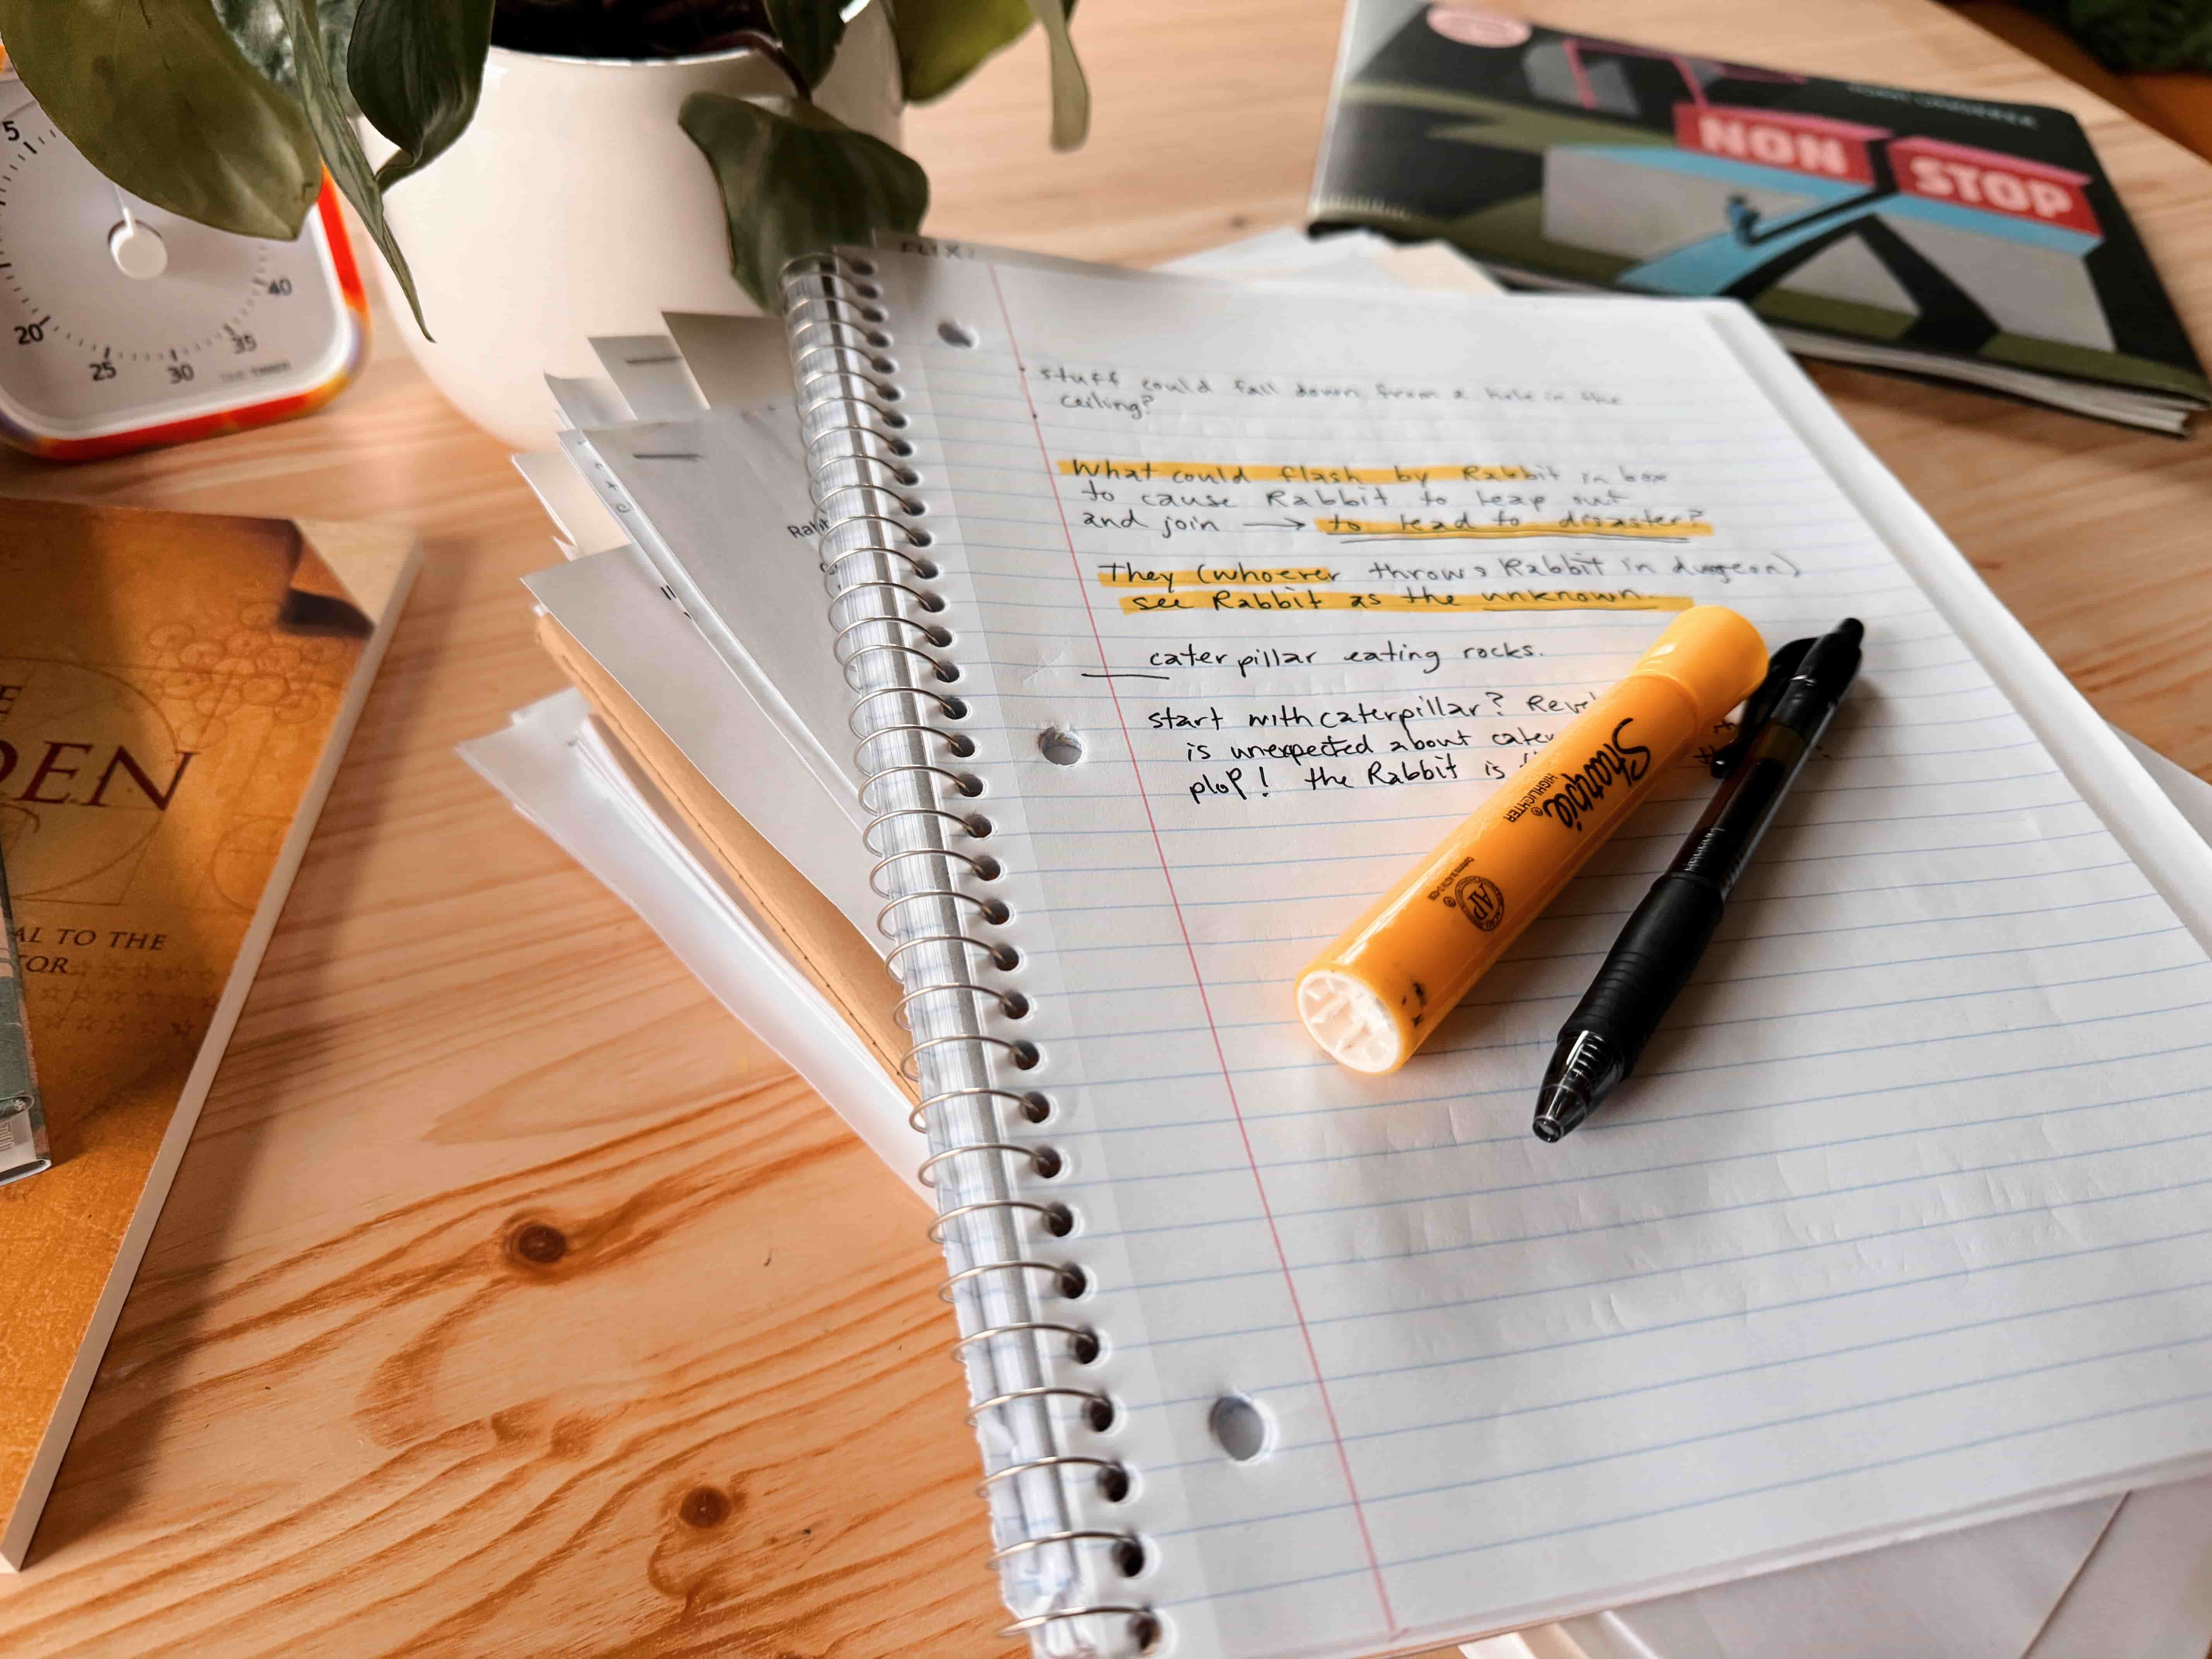 5
20
25
30
35
40
NON STOP
stuff could fall down from a hole in the
ceiling?
What could flash by Rabbit in box
to cause Rabbit to leap out
and join → to lead to disaster?
They (whoever throws Rabbit in dungeon)
see Rabbit as the unknown.
caterpillar eating rocks.
start with caterpillar? Reve
is unexpected about cater
plop! the Rabbit is
Sharpie
HIGHLIGHTER
AP
Rabb
E
DEN
AL TO THE
TOR